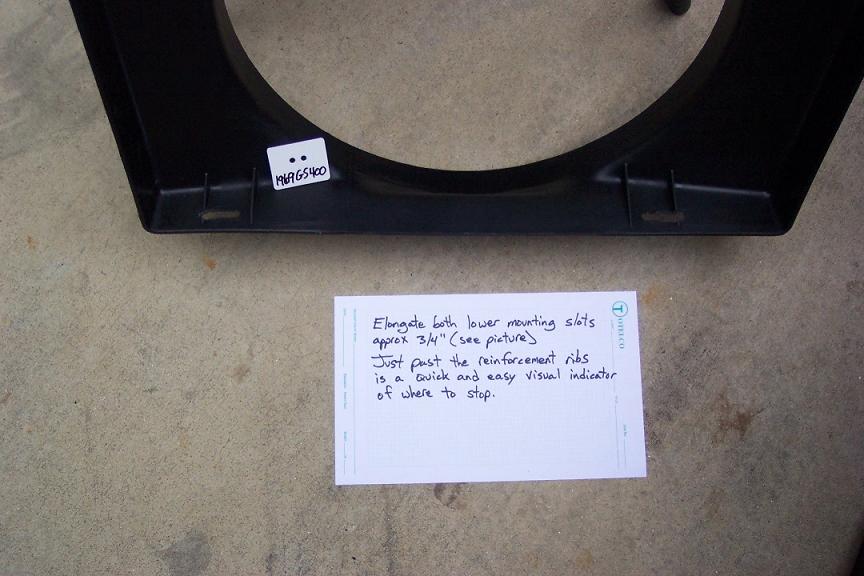 1969GS400
Elongate both lower mounting slots
approx 3/4" (see picture)
Just past the reinforcement ribs
is a quick and easy visual indicator
of where to stop.